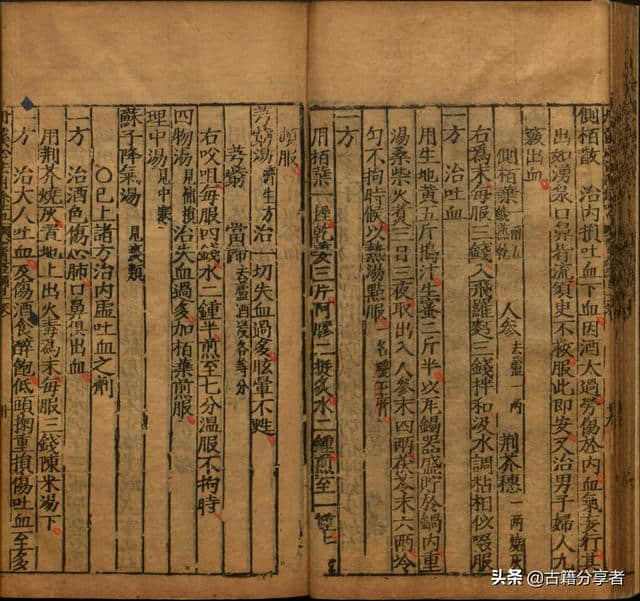 側栢散 治內損吐血下血因酒太過勞傷於內血氣妄行其
出如湧泉口鼻皆流須臾不救服此即安又治男子婦人九
竅出血
側栢葉 蒸乾 人參 去蘆一兩 荊芥穗 一兩燒灰
右為末每服三錢入飛羅麵三錢拌和汲水調粘相似啜服
一方 治吐血
用生地黃五斤搗汁生蜜三斤半以錫器盛貯於鍋內重
湯桑柴火煮三日三夜取出入人參末四兩茯苓末六兩冷
勻不拘時候以熱湯點服
一方
用栢葉 三片阿膠二 水二鍾煎至一
頓服
芎藭湯 濟生方 治一切失血過多眩暈不甦
芎藭 當歸 去蘆酒浸各等分
右㕮咀每服四錢水二鍾半煎至七分溫服不拘時
四物湯 見補損 治失血過多加栢葉煎服
理中湯 見中寒
蘇子降氣湯 見痰類
○已上諸方治內虛吐血之劑
一方 治酒色傷心肺口鼻俱出血
用荊芥燒灰置地上出火毒為末每服三錢陳米湯下
一方 治大人吐血及傷酒食醉飽低頭掬重損傷吐血至多
头条 @古籍分享者